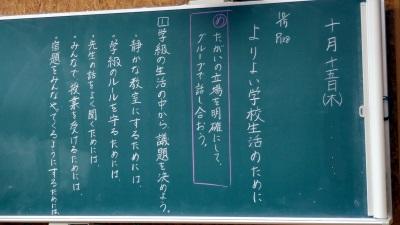 十月十五日(木)
P128
よりよい学校生活のために
め たがいの立場を明確にして、
グループで話し合おう。
1 学級の生活の中から議題を決めよう。
・静かな教室にするためには、
・学級のルールを守るためには、
・先生の話をよく聞くためには、
・みんなで授業を受けるためには、
・宿題をみんなやってくるようにするためには、